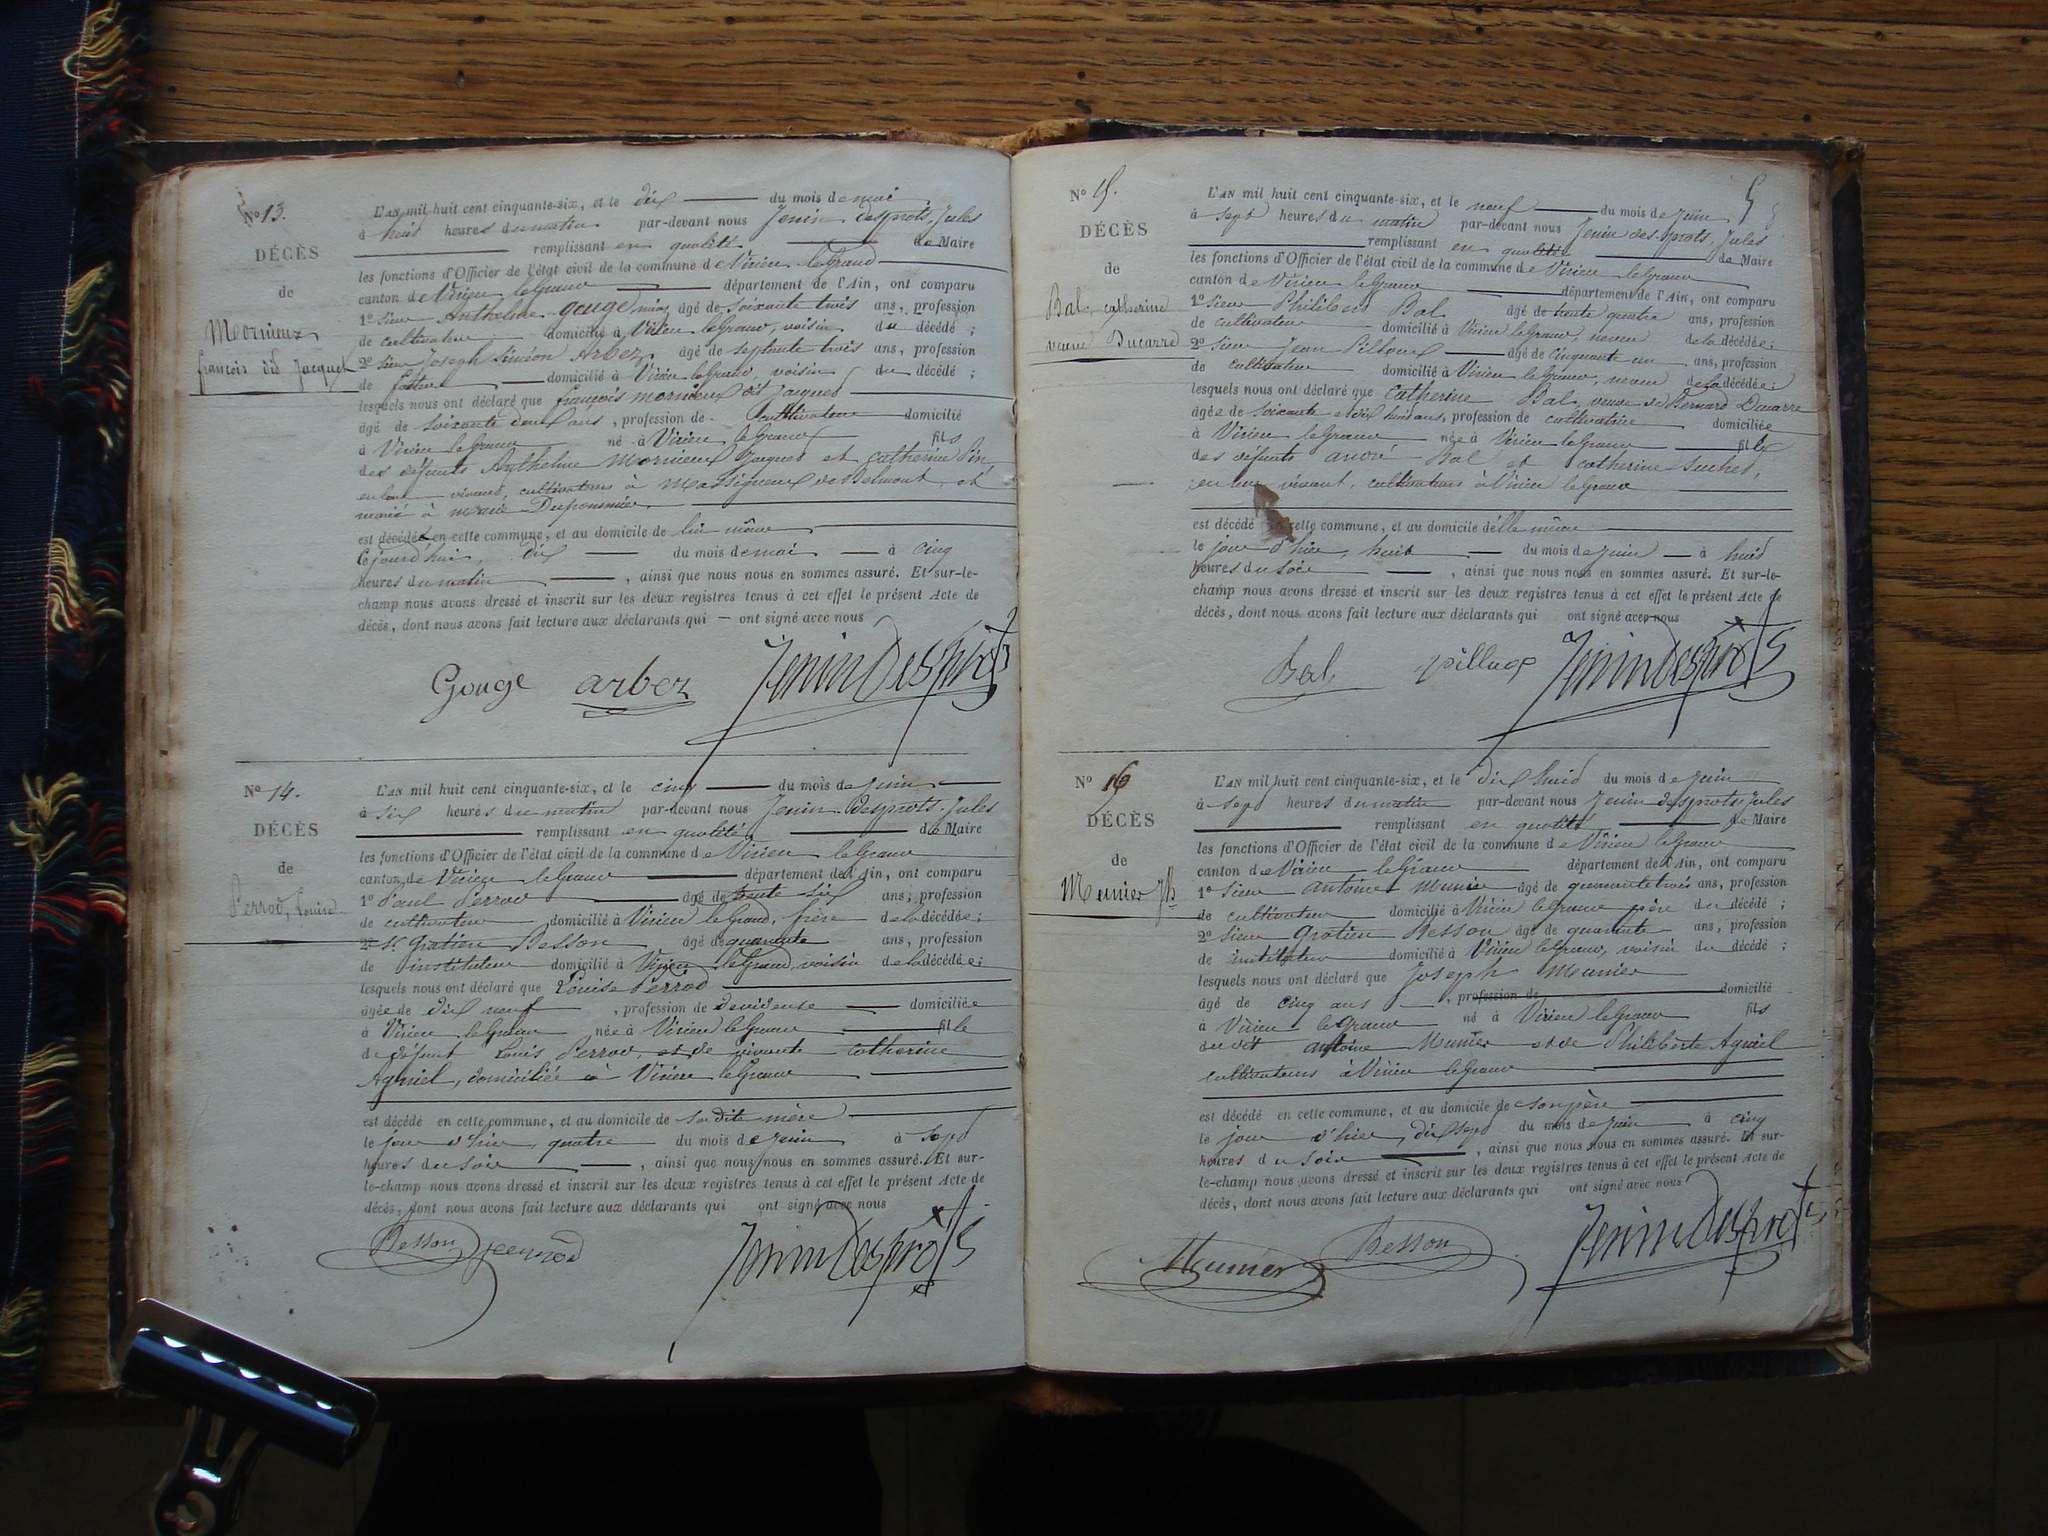 No 13.
DÉCÈS
de
Mornieux
françois dit Jacquet
L'AN mil huit cent cinquante-six, et le dix du mois de mai
à huit heures du matin par-devant nous Jenin desprots, Jules
remplissant en qualité de Maire
les fonctions d'Officier de l'état civil de la commune de Virieu le Grand
canton de Virieu le Grand département de l'Ain, ont comparu
1o sieur Anthelme Gouge âgé de soixante trois ans, profession
de cultivateur domicilié à Virieu le Grand, voisin du décédé ;
2o sieur Joseph Siméon Arbez, âgé de septante trois ans, profession
de domicilié à Virieu le Grand, voisin du décédé ;
lesquels nous ont déclaré que françois mornieux dit Jacques
âgé de soixante ans, profession de cultivateur domicilié
à Virieu le Grand né à Virieu le Grand fils
des défunts Anthelme Mornieux Jacques et Catherine
en leur vivant, cultivateurs à Massignieux de Belmont, et
marié à marie Duponnier
est décédé en cette commune, et au domicile de lui même
Cejourd'hui, dix du mois de mai à cinq
heures du matin , ainsi que nous nous en sommes assuré. Et sur-le-
champ nous avons dressé et inscrit sur les deux registres tenus à cet effet le présent Acte de
décès, dont nous avons fait lecture aux déclarants qui ont signé avec nous
Gouge arbez Jenin Desprots
No 14.
DÉCÈS
de
Perrod, Louise
L'AN mil huit cent cinquante-six, et le cinq du mois de juin
à six heures du matin par-devant nous Jenin Desprots, Jules
remplissant en qualité de Maire
les fonctions d'Officier de l'état civil de la commune de Virieu le Grand
canton de Virieu le Grand département de l'Ain, ont comparu
1o Paul Perrod âgé de trente six ans, profession
de cultivateur domicilié à Virieu le Grand, frère de la décédée ;
2o Sr Gratien Besson âgé de quarante ans, profession
de instituteur domicilié à Virieu le Grand, voisin de la décédée ;
lesquels nous ont déclaré que Louise Perrod
âgée de dix neuf , profession de devideuse domiciliée
à Virieu le Grand née à Virieu le Grand fille
de défunt Louis Perrod, et de vivante Catherine
Aguiel, domiciliée à Virieu le Grand
est décédé en cette commune, et au domicile de sa dite mère
le jour d'hier, quatre du mois de juin à sept
heures du soir , ainsi que nous nous en sommes assuré. Et sur-
le-champ nous avons dressé et inscrit sur les deux registres tenus à cet effet le présent Acte de
décès, dont nous avons fait lecture aux déclarants qui ont signé avec nous
Besson perrod Jenin Desprots
5
No 15.
DÉCÈS
de
Bal, catherine
veuve Ducarre
L'AN mil huit cent cinquante-six, et le neuf du mois de juin
à sept heures du matin par-devant nous Jenin desprots, Jules
remplissant en qualité de Maire
les fonctions d'Officier de l'état civil de la commune de Virieu le Grand
canton de Virieu le Grand département de l'Ain, ont comparu
1o sieur Philibert Bal âgé de trente quatre ans, profession
de cultivateur domicilié à Virieu le Grand, neveu de la décédée ;
2o sieur Jean Pilloux âgé de cinquante un ans, profession
de cultivateur domicilié à Virieu le Grand, neveu de la décédée ;
lesquels nous ont déclaré que Catherine Bal, veuve de Bernard Ducarre
âgée de soixante et dix huit ans, profession de cultivatrice domiciliée
à Virieu le Grand née à Virieu le Grand fille
des défunts André Bal et Catherine Suchet,
en leur vivant, cultivateurs à Virieu le Grand
est décédé en cette commune, et au domicile d'elle même
le jour d'hier, huit du mois de juin à huit
heures du soir , ainsi que nous nous en sommes assuré. Et sur-le-
champ nous avons dressé et inscrit sur les deux registres tenus à cet effet le présent Acte de
décès, dont nous avons fait lecture aux déclarants qui ont signé avec nous
Bal pilloux Jenin Desprots
No 16
DÉCÈS
de
Meunier Jh
L'AN mil huit cent cinquante-six, et le dix huit du mois de juin
à sept heures du matin par-devant nous Jenin desprots Jules
remplissant en qualité de Maire
les fonctions d'Officier de l'état civil de la commune de Virieu le Grand
canton de Virieu le Grand département de l'Ain, ont comparu
1o sieur antoine Munier âgé de quarante trois ans, profession
de cultivateur domicilié à Virieu le Grand père du décédé ;
2o sieur Gratien Besson âgé de quarante ans, profession
de instituteur domicilié à Virieu le Grand, voisin du décédé ;
lesquels nous ont déclaré que Joseph Meunier
âgé de cinq ans , profession de domicilié
à Virieu le Grand né à Virieu le Grand fils
du dit antoine Munier et de Philiberte Aguiel
cultivateurs à Virieu le Grand
est décédé en cette commune, et au domicile de son père
le jour d'hier, dix sept du mois de juin à cinq
heures du soir , ainsi que nous nous en sommes assuré. Et sur-
le-champ nous avons dressé et inscrit sur les deux registres tenus à cet effet le présent Acte de
décès, dont nous avons fait lecture aux déclarants qui ont signé avec nous
Meunier Besson Jenin Desprots